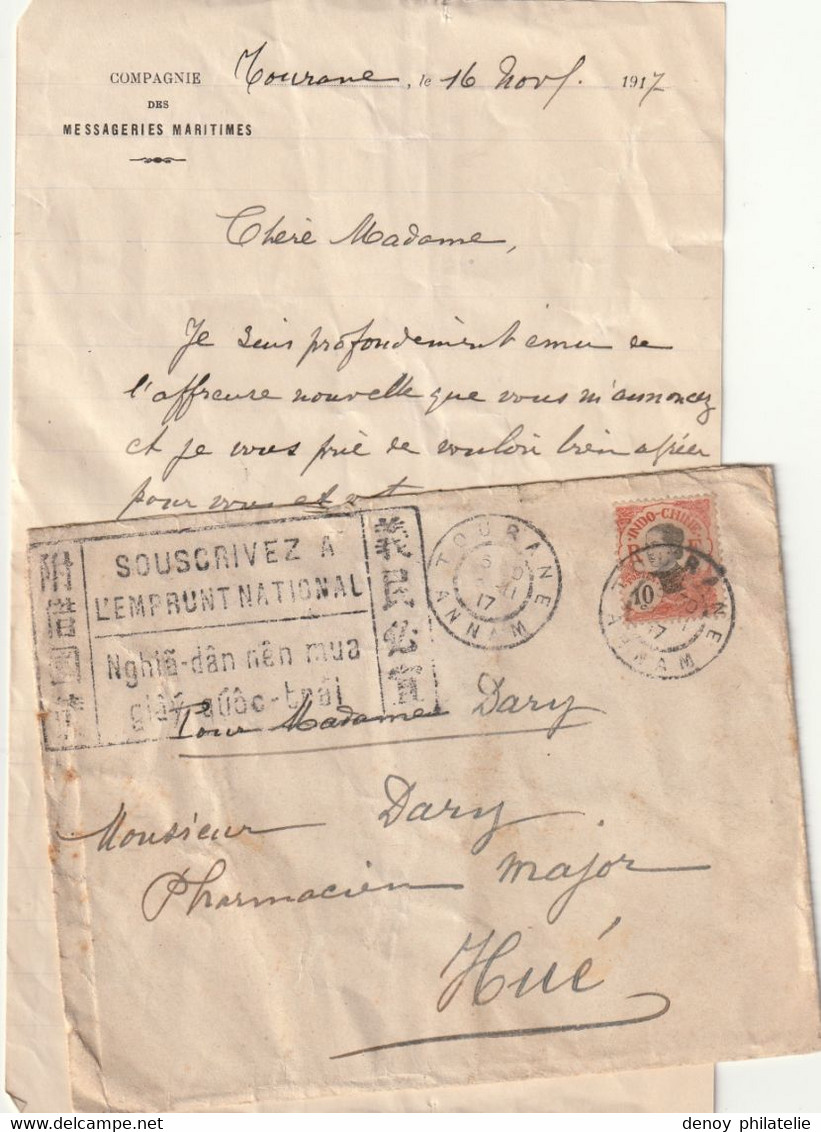 COMPAGNIE
DES
MESSAGERIES MARITIMES
Tourane, le 16 Nov. 1917
Chère Madame,
Je suis profondément ému de
l'affreuse nouvelle que vous m'annoncez
et je vous prie de vouloir bien agréer
pour vous et
SOUSCRIVEZ A
L'EMPRUNT NATIONAL
Nghiã-dân nên mua
giấy quốc-trái
義民必買
TOURANE
17
ANNAM
INDO-CHINE
10
Pour Madame Dary
Monsieur Dary
Pharmacien major
Hué
denoy philatelie / delcampe.net